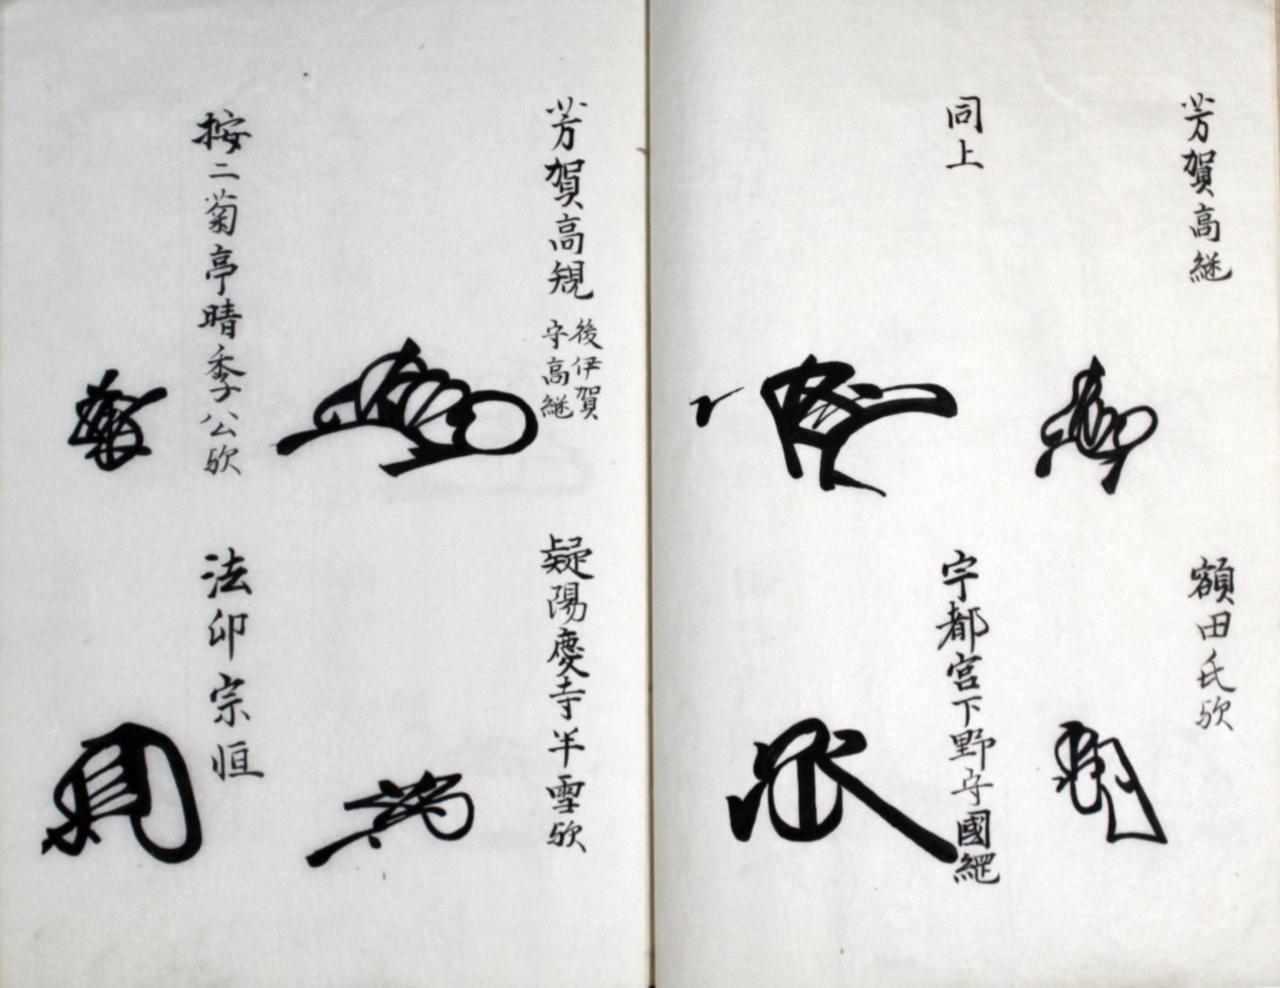 芳賀高継
額田氏欤
同上
宇都宮下野守國綱
芳賀高規
後伊賀
守高継
疑陽慶寺半雪欤
按二菊亭晴季公欤
法印宗恒